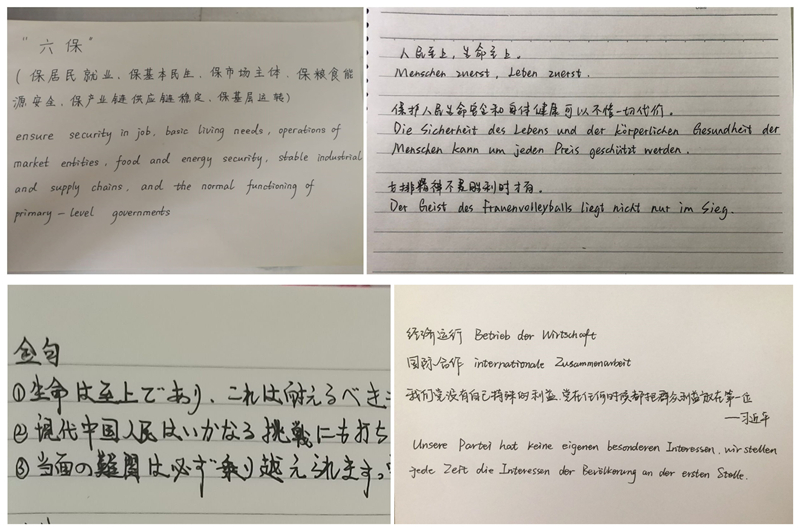 “六保”
(保居民就业、保基本民生、保市场主体、保粮食能
源安全、保产业链供应链稳定、保基层运转)
ensure security in job, basic living needs, operations of
market entities, food and energy security, stable industrial
and supply chains, and the normal functioning of
primary-level governments
人民至上,生命至上。
Menschen zuerst, Leben zuerst.
保护人民生命安全和身体健康可以不惜一切代价。
Die Sicherheit des Lebens und der körperlichen Gesundheit der
Menschen kann um jeden Preis geschützt werden.
女排精神不是胜利时才有。
Der Geist des Frauenvolleyballs liegt nicht nur im Sieg.
金句
①生命は至上であり、これは耐えるべき
②現代中国人民はいかなる挑戦にも打ち
③当面の難関は必ず乗り越えられます。
经济运行 Betrieb der Wirtschaft
国际合作 internationale Zusammenarbeit
我们党没有自己特殊的利益,党在任何时候都把群众利益放在第一位
——习近平
Unsere Partei hat keine eigenen besonderen Interessen, wir stellen
jede Zeit die Interessen der Bevölkerung an der ersten Stelle.